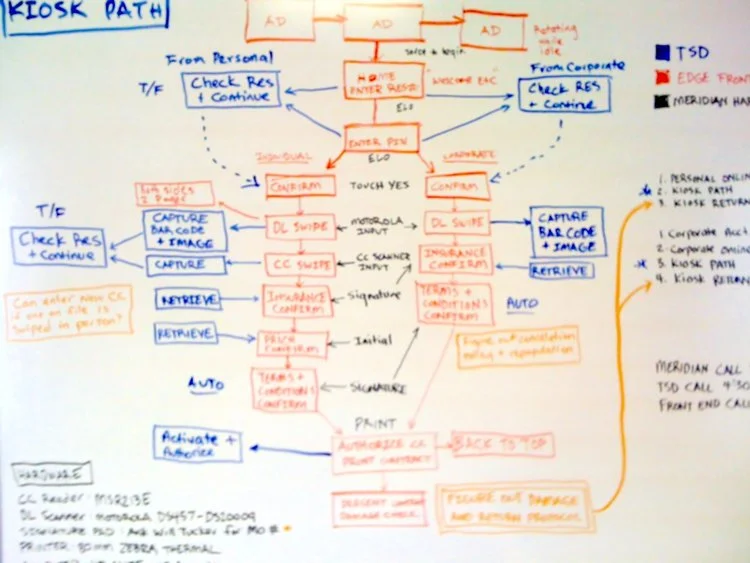 KIOSK PATH
AD
AD
AD
Rotating
while
idle
From Personal
T/F
Check Res
+ Continue
HOME
ENTER RES#
"WELCOME ETC"
From Corporate
Check Res
+ Continue
ELO
ENTER PIN
ELO
TSD
EDGE FRONT
MERIDIAN HAR
INDIVIDUAL
CORPORATE
CONFIRM
TOUCH YES
CONFIRM
1. PERSONAL ONLINE
2. KIOSK PATH
3. KIOSK RETURN
Both sides
T/F
CAPTURE
BAR CODE
+ IMAGE
DL SWIPE
MOTOROLA
INPUT
DL SWIPE
CAPTURE
BAR CODE
+ IMAGE
1. Corporate Acct
2. Corporate Online
3. KIOSK PATH
4. KIOSK RETURN
Check Res
+ Continue
CAPTURE
CC SWIPE
CC SCANNER
INPUT
INSURANCE
CONFIRM
RETRIEVE
Can enter new CC
if one on file is
swiped in person?
RETRIEVE
INSURANCE
CONFIRM
Signature
TERMS +
CONDITIONS
CONFIRM
AUTO
RETRIEVE
PRICE
CONFIRM
Initial
Figure out cancelation
policy +
AUTO
TERMS +
CONDITIONS
CONFIRM
SIGNATURE
MERIDIAN CALL
TSD CALL 4:30
FRONT END CALL
PRINT
Activate +
Authorize
AUTHORIZE CC
PRINT CONTRACT
BACK TO TOP
HARDWARE
CC Reader: MSR213E
DL Scanner: MOTOROLA DS457-DS20009
SIGNATURE PAD: Ask Will Tucker for Mo #
PRINTER: 80mm ZEBRA THERMAL
DAMAGE CHECK
FIGURE OUT DAMAGE
AND RETURN PROTOCOL